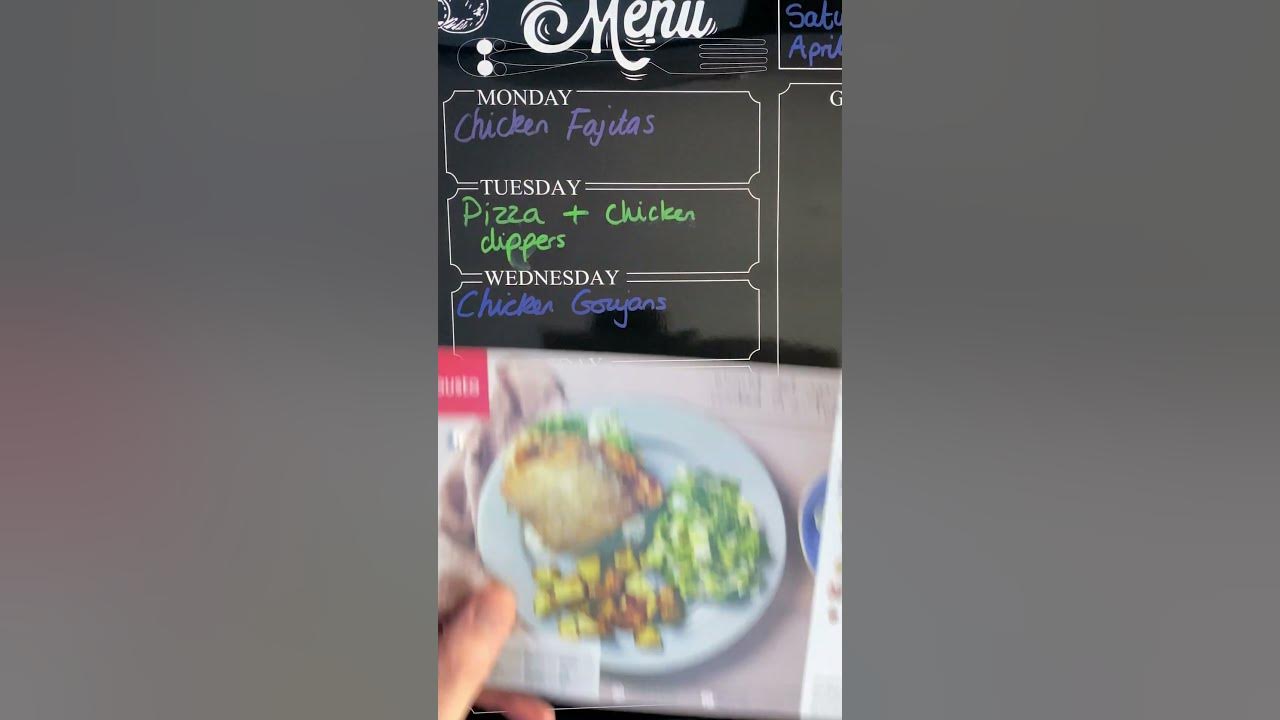 Menu
Satu
April
MONDAY
Chicken Fajitas
G
TUESDAY
Pizza + chicken
dippers
WEDNESDAY
Chicken Goujans
DAY
usto